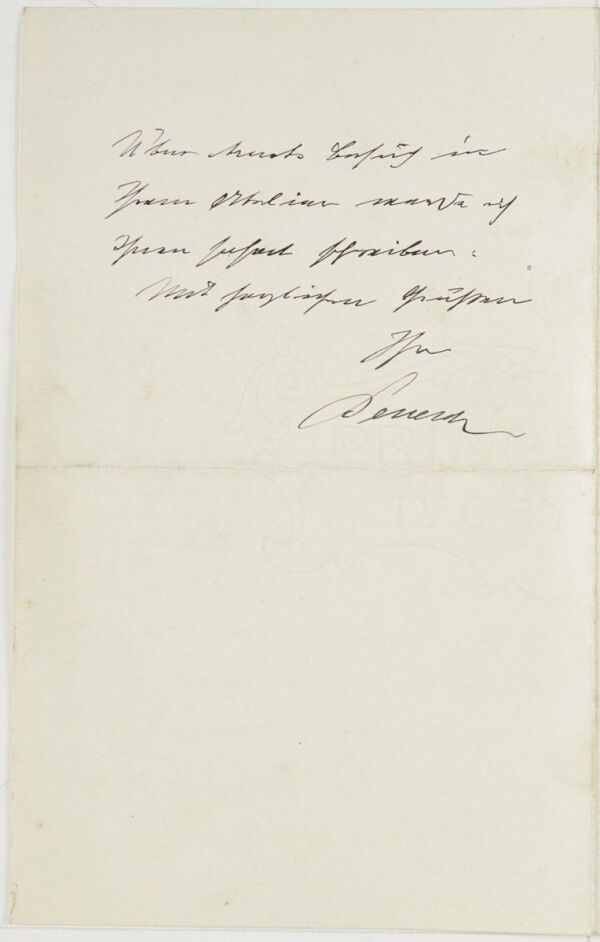 Über Arndts Besuch in
Ihrem Atelier werde ich
Ihnen sofort schreiben.
Mit herzlichen Grüßen
Ihr